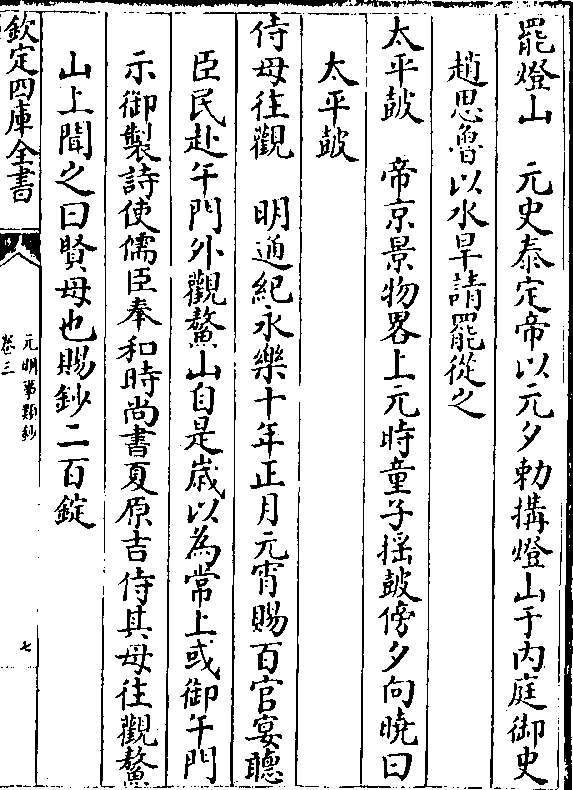 罷燈山　元史泰定帝以元夕勅搆燈山于内庭御史
趙思魯以水旱請罷從之
太平鼓　帝京景物畧上元時童子揺鼓傍夕向曉曰
太平鼓
侍母往觀　明通紀永樂十年正月元宵賜百官宴聽
臣民赴午門外觀鰲山自是歲以為常上或御午門
示御製詩使儒臣奉和時尚書夏原吉侍其母往觀鰲
山上聞之曰賢母也賜鈔二百錠
欽定四庫全書
元明事類鈔
卷三
七